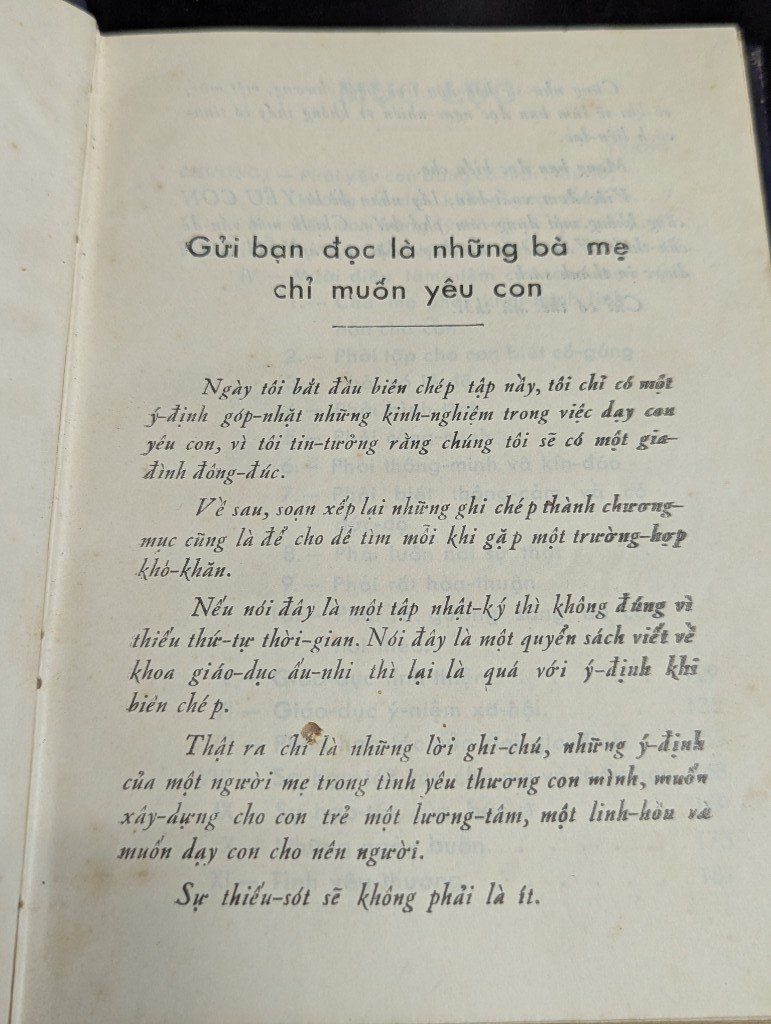 Gửi bạn đọc là những bà mẹ
chỉ muốn yêu con
Ngày tôi bắt đầu biên chép tập nầy, tôi chỉ có một
ý-định góp-nhặt những kinh-nghiệm trong việc dạy con
yêu con, vì tôi tin-tưởng rằng chúng tôi sẽ có một gia-
đình đông-đúc.
Về sau, soạn xếp lại những ghi chép thành chương-
mục cũng là để cho dễ tìm mỗi khi gặp một trường-hợp
khó-khăn.
Nếu nói đây là một tập nhật-ký thì không đúng vì
thiếu thứ-tự thời-gian. Nói đây là một quyển sách viết về
khoa giáo-dục ấu-nhi thì lại là quá với ý-định khi
biên chép.
Thật ra chỉ là những lời ghi-chú, những ý-định
của một người mẹ trong tình yêu thương con mình, muốn
xây-dựng cho con trẻ một lương-tâm, một linh-hồn và
muốn dạy con cho nên người.
Sự thiếu-sót sẽ không phải là ít.